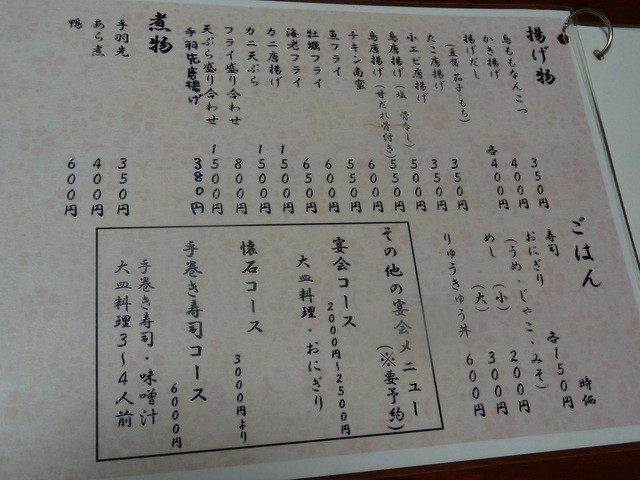 揚げ物
鳥ももなんこつ 350円
かき揚げ 400円
揚げだし 各400円
(豆腐・茄子・もち)
たこ唐揚げ 350円
小エビ唐揚げ 350円
鳥唐揚げ(塩 骨なし) 500円
鳥唐揚げ(甘だれ骨付き) 550円
チキン南蛮 600円
魚フライ 550円
牡蠣フライ 600円
海老フライ 650円
カニ唐揚げ 1500円
カニ天ぷら 1500円
フライ盛り合わせ 800円
天ぷら盛り合わせ 1500円
手羽先唐揚げ 380円
煮物
手羽先 350円
あら煮 400円
鴨 600円
ごはん
寿司 時価
おにぎり 各150円
(うめ・じゃこ・みそ)
めし (小) 200円
(大) 300円
りゅうきゅう丼 600円
その他の宴会メニュー
(※要予約)
宴会コース
2000円〜2500円
大皿料理・おにぎり
懐石コース
3000円より
手巻き寿司コース
6000円
手巻き寿司・味噌汁
大皿料理3〜4人前